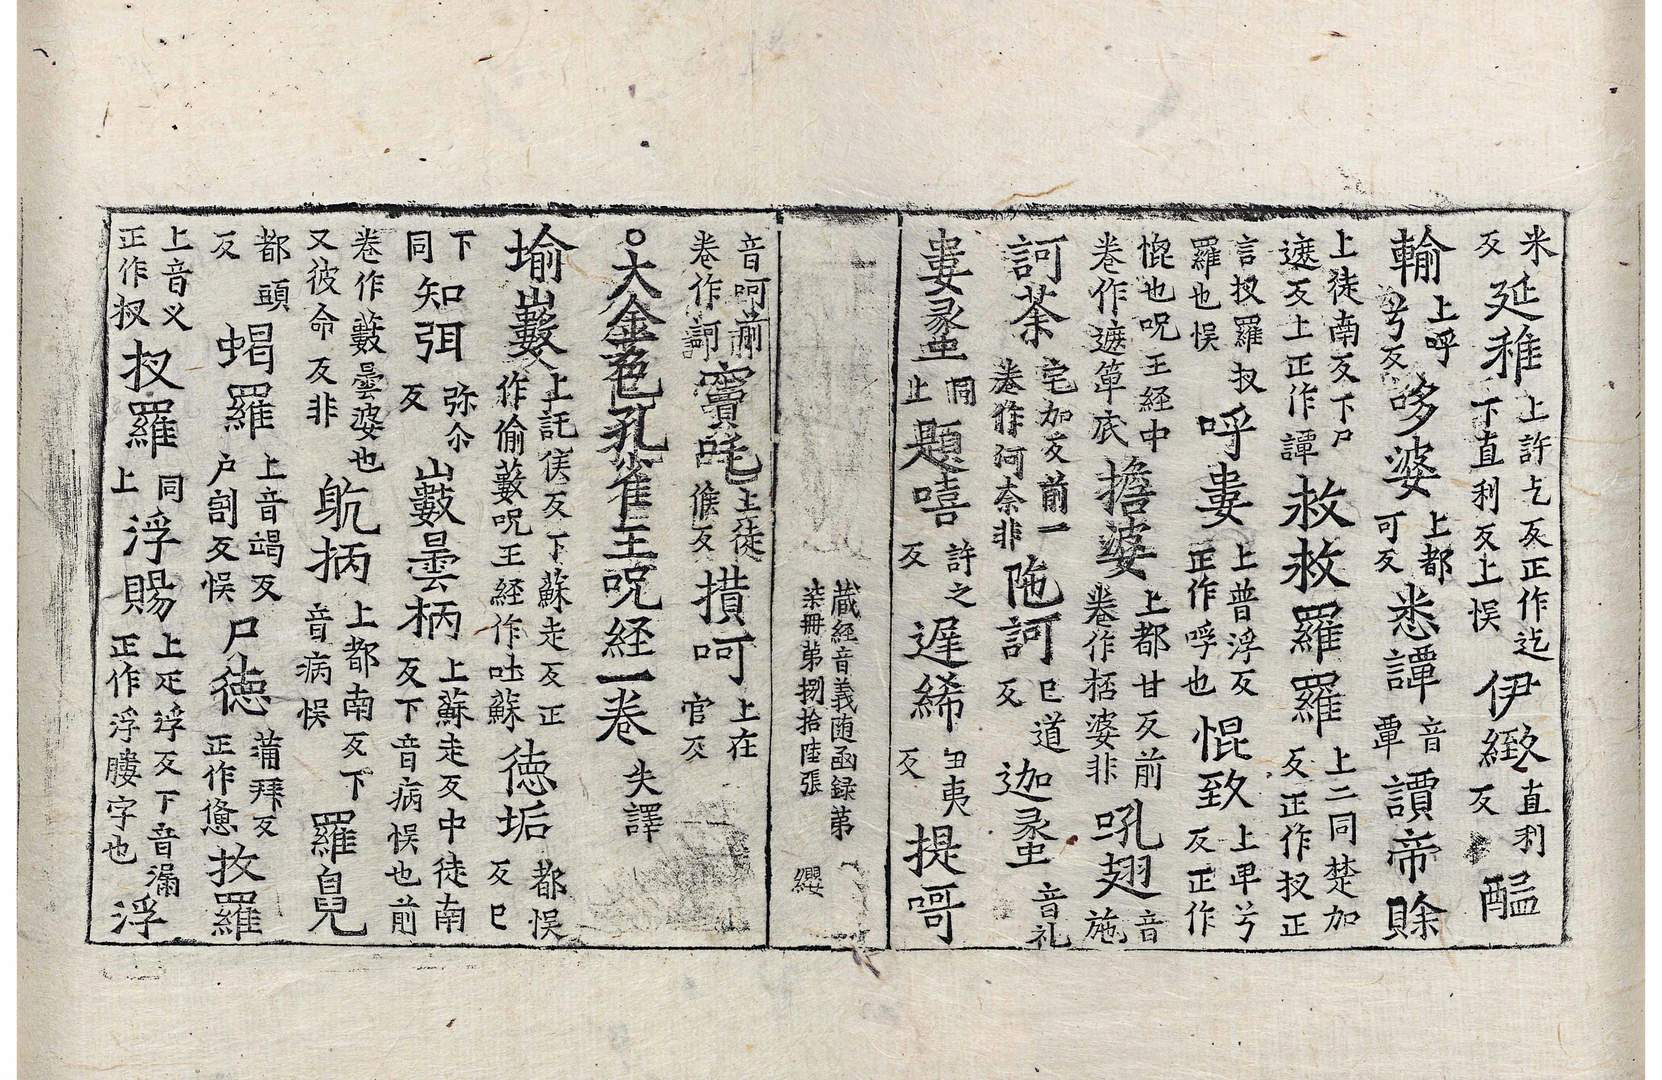 米反延稚上許乞反正作迄下直利反上悮伊緻直利反醖
輸上呼兮反哆婆上都可反悉譚音覃讀帝賖
上徒南反下尸遮反上正作譚赦赦羅羅上二同楚加反正作扠正
言扠羅扠羅也悮呼婁上普浮反正作呼也惃致上甲兮反正作
惃也呪王經中卷作遮箄底擔婆上都甘反前卷作栝婆非吼翅音施
訶茶宅加反前一卷作阿奈非陁訶巳道反迦蟸音礼
婁蟸同上題嘻許之反遲絺丑夷反提哥
藏経音義随函録苐柒冊苐捌拾陸張 纓
音呵前卷作訶竇𣬛上徒候反攅呵上在官反
○大金色孔雀王呪経一卷失譯
㙛㰈上託侯反下蘇走反正作偷藪呪王経作吐蘇徳垢都悮反巳
下同知弭弥尒反藪曇柄上蘇走反中徒南反下音病悮也前
卷作藪曇婆也又彼命反非躭柄上都南反下音病悮羅㒵
都頭反蝎羅上音竭反户割反悮尸徳蒲拜反正作憊扠羅
上音义正作扠扠羅同上浮賜上疋浮反下音漏正作浮䁖字也浮